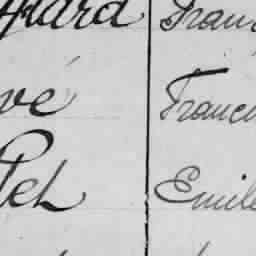 ffrard Franç
vé Franc
Pel Emile